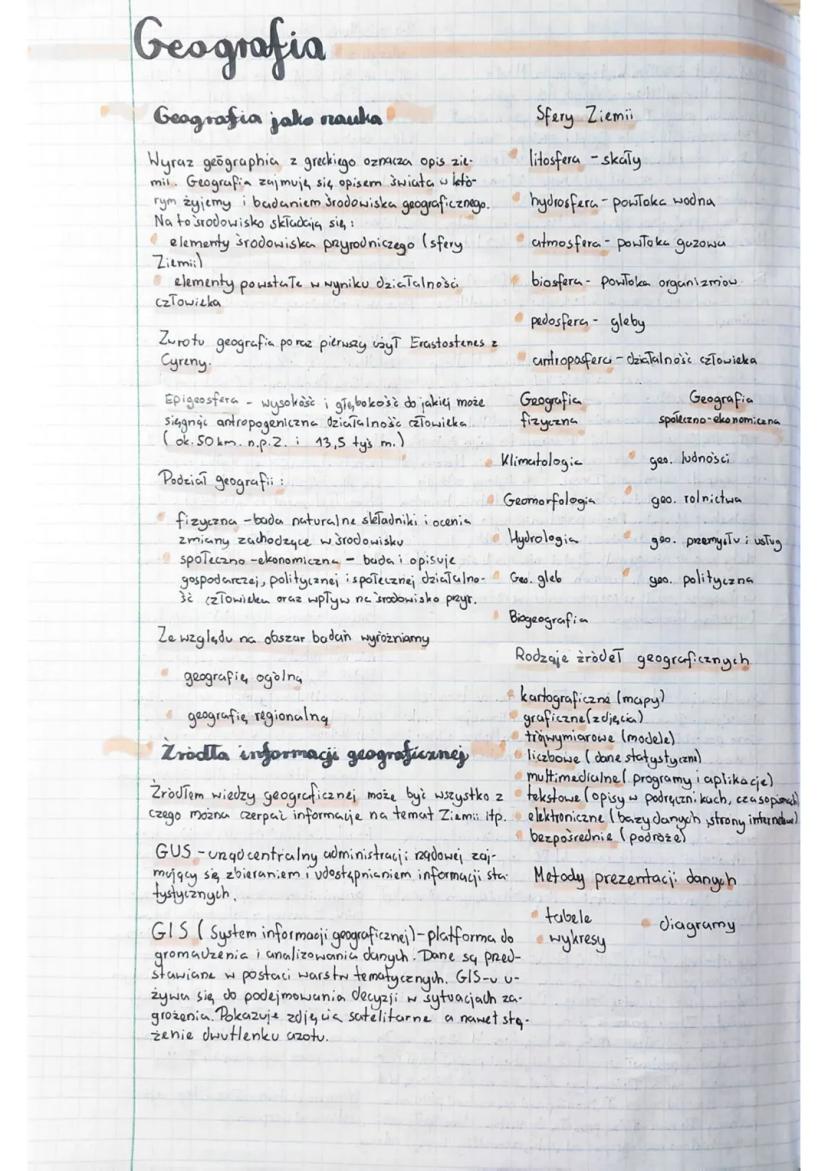 Geografia
Geografia jako nauka
Wyraz geōgraphia z greckiego oznacza opis zie-
mii. Geografia zajmuję się opisem świata w któ-
rym żyjemy i badaniem środowiska geograficznego.
Na to środowisko składają się:
elementy środowiska przyrodniczego (sfery
Ziemii)
elementy powstałe w wyniku działalności
człowieka
Zwrotu geografia po raz pierwszy użył Erastostenes z
Cyreny.
Epigeosfera - wysokość i głębokość do jakiej może
sięgnąć antropogeniczna działalność człowieka
(ok. 50 km. n.p.z. i 13,5 tyś m.)
Podział geografii:
fizyczna - bada naturalne składniki i ocenia
zmiany zachodzące w środowisku
społeczno-ekonomiczna - bada i opisuje
gospodarczej, politycznej i społecznej działalno-
ść człowieka oraz wpływ na środowisko przyr.
Ze względu na obszar badań wyróżniamy
geografię ogólną
geografię regionalną
Źródła informacji geograficznej
Źródłem wiedzy geograficznej może być wszystko z
czego można czerpać informacje na temat Ziemii itp.
GUS - urząd centralny administracji rządowej zaj-
mujący się zbieraniem i udostępnianiem informacji sta-
tystycznych.
GIS (System informacji geograficznej) - platforma do
gromadzenia i analizowania danych. Dane są przed-
stawiane w postaci warstw tematycznych. GIS-u u-
żywa się do podejmowania decyzji w sytuacjach za-
grożenia. Pokazuje zdjęcia satelitarne a nawet stę-
żenie dwutlenku azotu.
Sfery Ziemii
litosfera - skały
hydrosfera - powłoka wodna
atmosfera - powłoka gazowa
biosfera - powłoka organizmów
pedosfera - gleby
antroposfera - działalność człowieka
Geografia
fizyczna
Klimatologia
Geomorfologia
Hydrologia
Geo. gleb
Biogeografia
Geografia
społeczno-ekonomiczna
geo. ludności
geo. rolnictwa
geo. przemysłu i usług
geo. polityczna
Rodzaje źródeł geograficznych
kartograficzne (mapy)
graficzne (zdjęcia)
trójwymiarowe (modele)
liczbowe (dane statystyczne)
multimedialne (programy i aplikacje)
tekstowe (opisy w podręcznikach, czasopismach)
elektroniczne (bazy danych, strony internetowe)
bezpośrednie (podróże)
Metody prezentacji danych
tabele
wykresy
diagramy